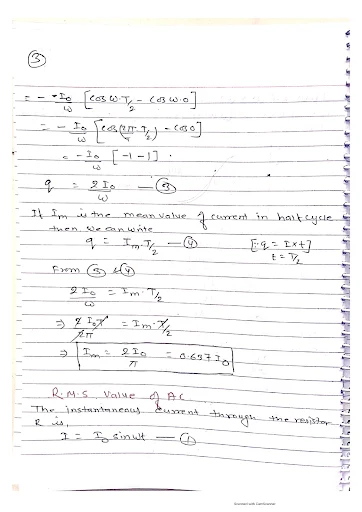 ③
= - I₀/ω [cos ω·T/2 - cos ω·0]
= - I₀/ω [cos(2π/T · T/2) - cos 0]
= - I₀/ω [-1-1] .
q = 2I₀/ω — ③
If Im is the mean value of current in half cycle
then we can write
q = Im·T/2 — ④ [∵ q = I×t]
t = T/2
From ③ & ④
2I₀/ω = Im·T/2
⇒ 2I₀T/2π = Im·T/2
⇒ Im = 2I₀/π = 0.637 I₀
R.M.S. Value of AC
The instantaneous current through the resistor
R is,
I = I₀ sin ωt — ①
Scanned with CamScanner